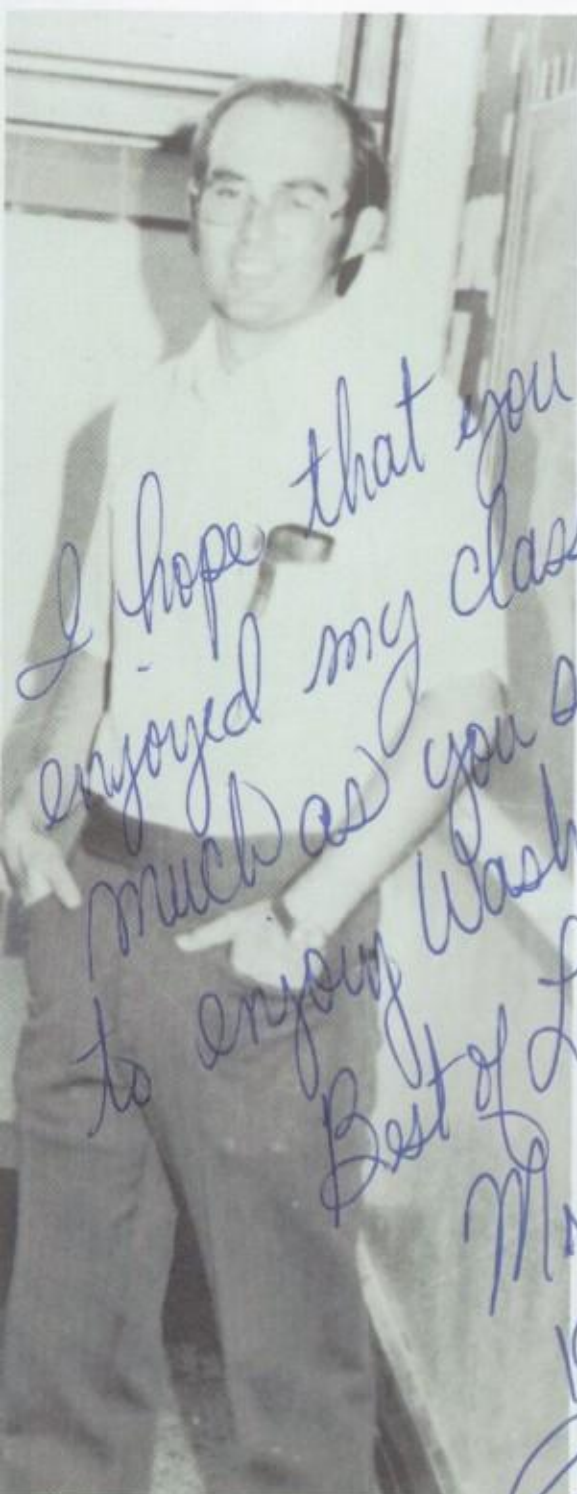 I hope that you
enjoyed my clas
much as you s
to enjoy Wash
Best of L
M